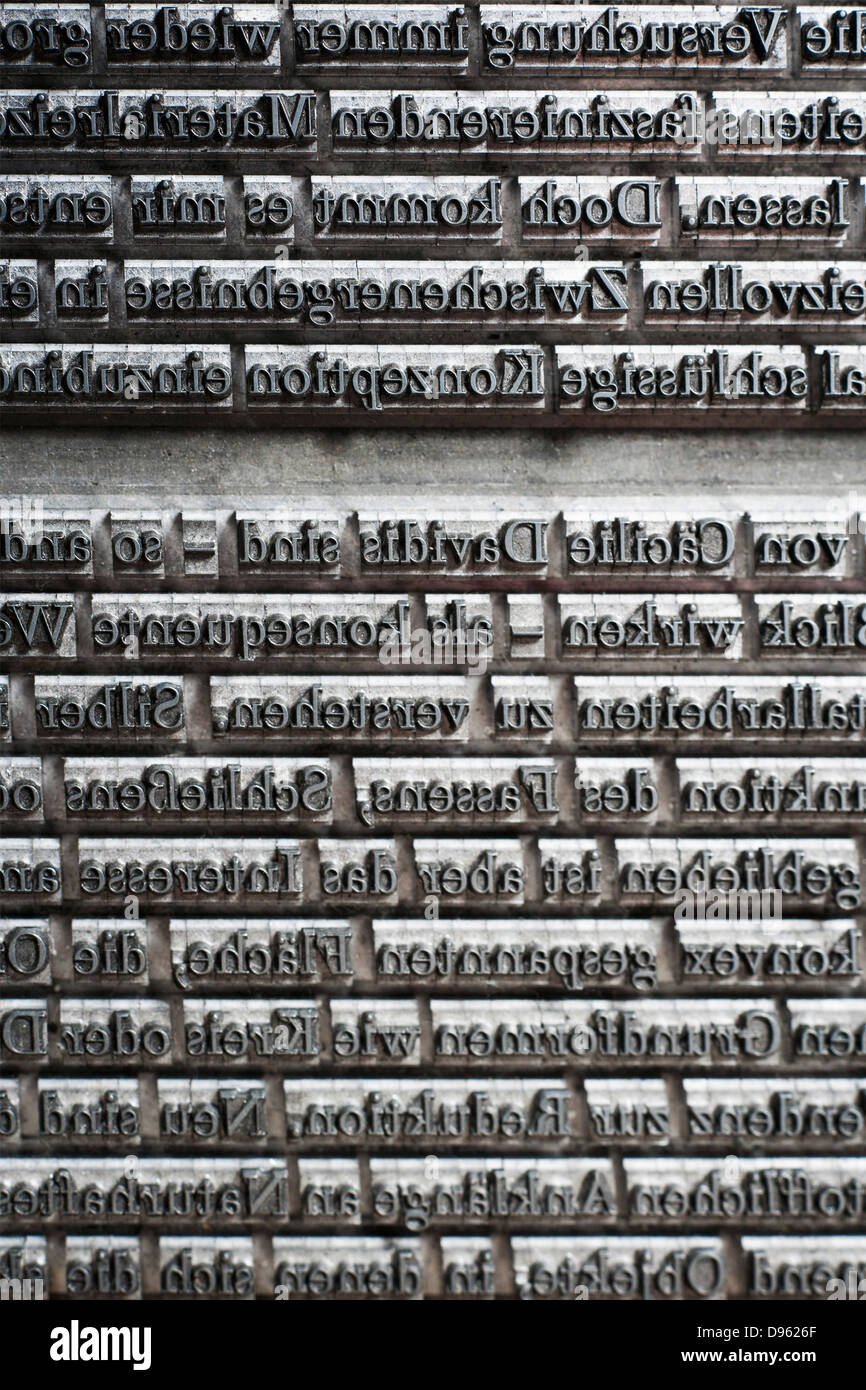 die Versuchung immer wieder gro
eitens faszinierenden Materialreize
lassen. Doch kommt es mir entsc
eizvollen Zwischenergebnisse in ei
al schlüssige Konzeption einzubind
von Cäcilie Davidis sind – so and
lick wirken – als konsequente We
tallarbeiten zu verstehen, Silber
nktion des Fassens, Schließens od
geblieben ist aber das Interesse an
konvex gespannten Fläche, die Or
en Grundformen wie Kreis oder D
endenz zur Reduktion. Neu sind d
tofflichen Anklänge an Naturhaftes
end Objekte, in denen sich die
alamy
Image ID: D9626F
www.alamy.com